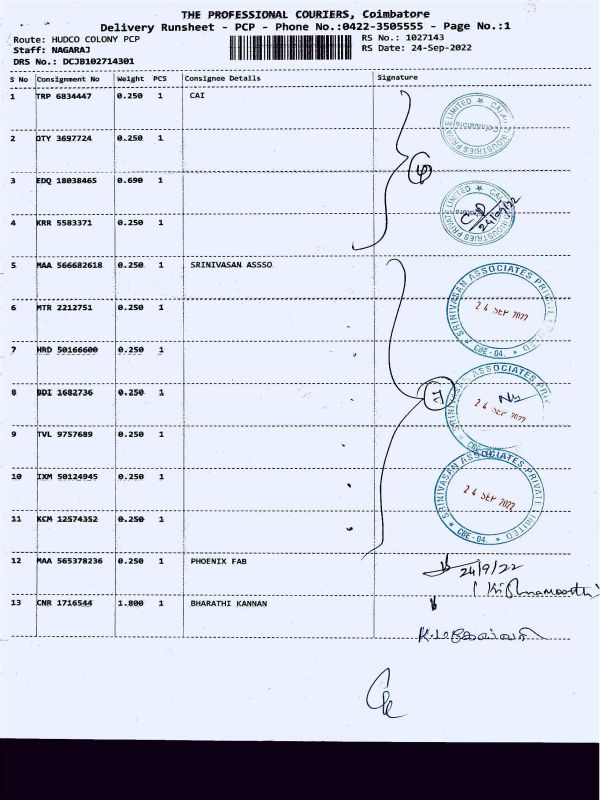 THE PROFESSIONAL COURIERS, Coimbatore
Delivery Runsheet - PCP - Phone No.:0422-3505555 - Page No.:1
Route: HUDCO COLONY PCP RS No.: 1027143
Staff: NAGARAJ RS Date: 24-Sep-2022
DRS No.: DCJB102714301
S No Consignment No Weight PCS Consignee Details Signature
1 TRP 6834447 0.250 1 CAI
2 OTY 3697724 0.250 1
3 EDQ 18038465 0.690 1
4 KRR 5583371 0.250 1
5 MAA 566682618 0.250 1 SRINIVASAN ASSSO
6 MTR 2212751 0.250 1
7 HRD 50166600 0.250 1
8 BDI 1682736 0.250 1
9 TVL 9757689 0.250 1
10 IXM 50124945 0.250 1
11 KCM 12574352 0.250 1
12 MAA 565378236 0.250 1 PHOENIX FAB
13 CNR 1716544 1.800 1 BHARATHI KANNAN
INDUSTRIES PRIVATE LIMITED
Coimbatore
INDUSTRIES PRIVATE LIMITED
24/09/22
SRINIVASAN ASSOCIATES PRIVATE LIMITED
24 SEP 2022
CBE - 04.
SRINIVASAN ASSOCIATES PRIVATE LIMITED
24 SEP 2022
SRINIVASAN ASSOCIATES PRIVATE LIMITED
24 SEP 2022
CBE - 04.
7
24/9/22